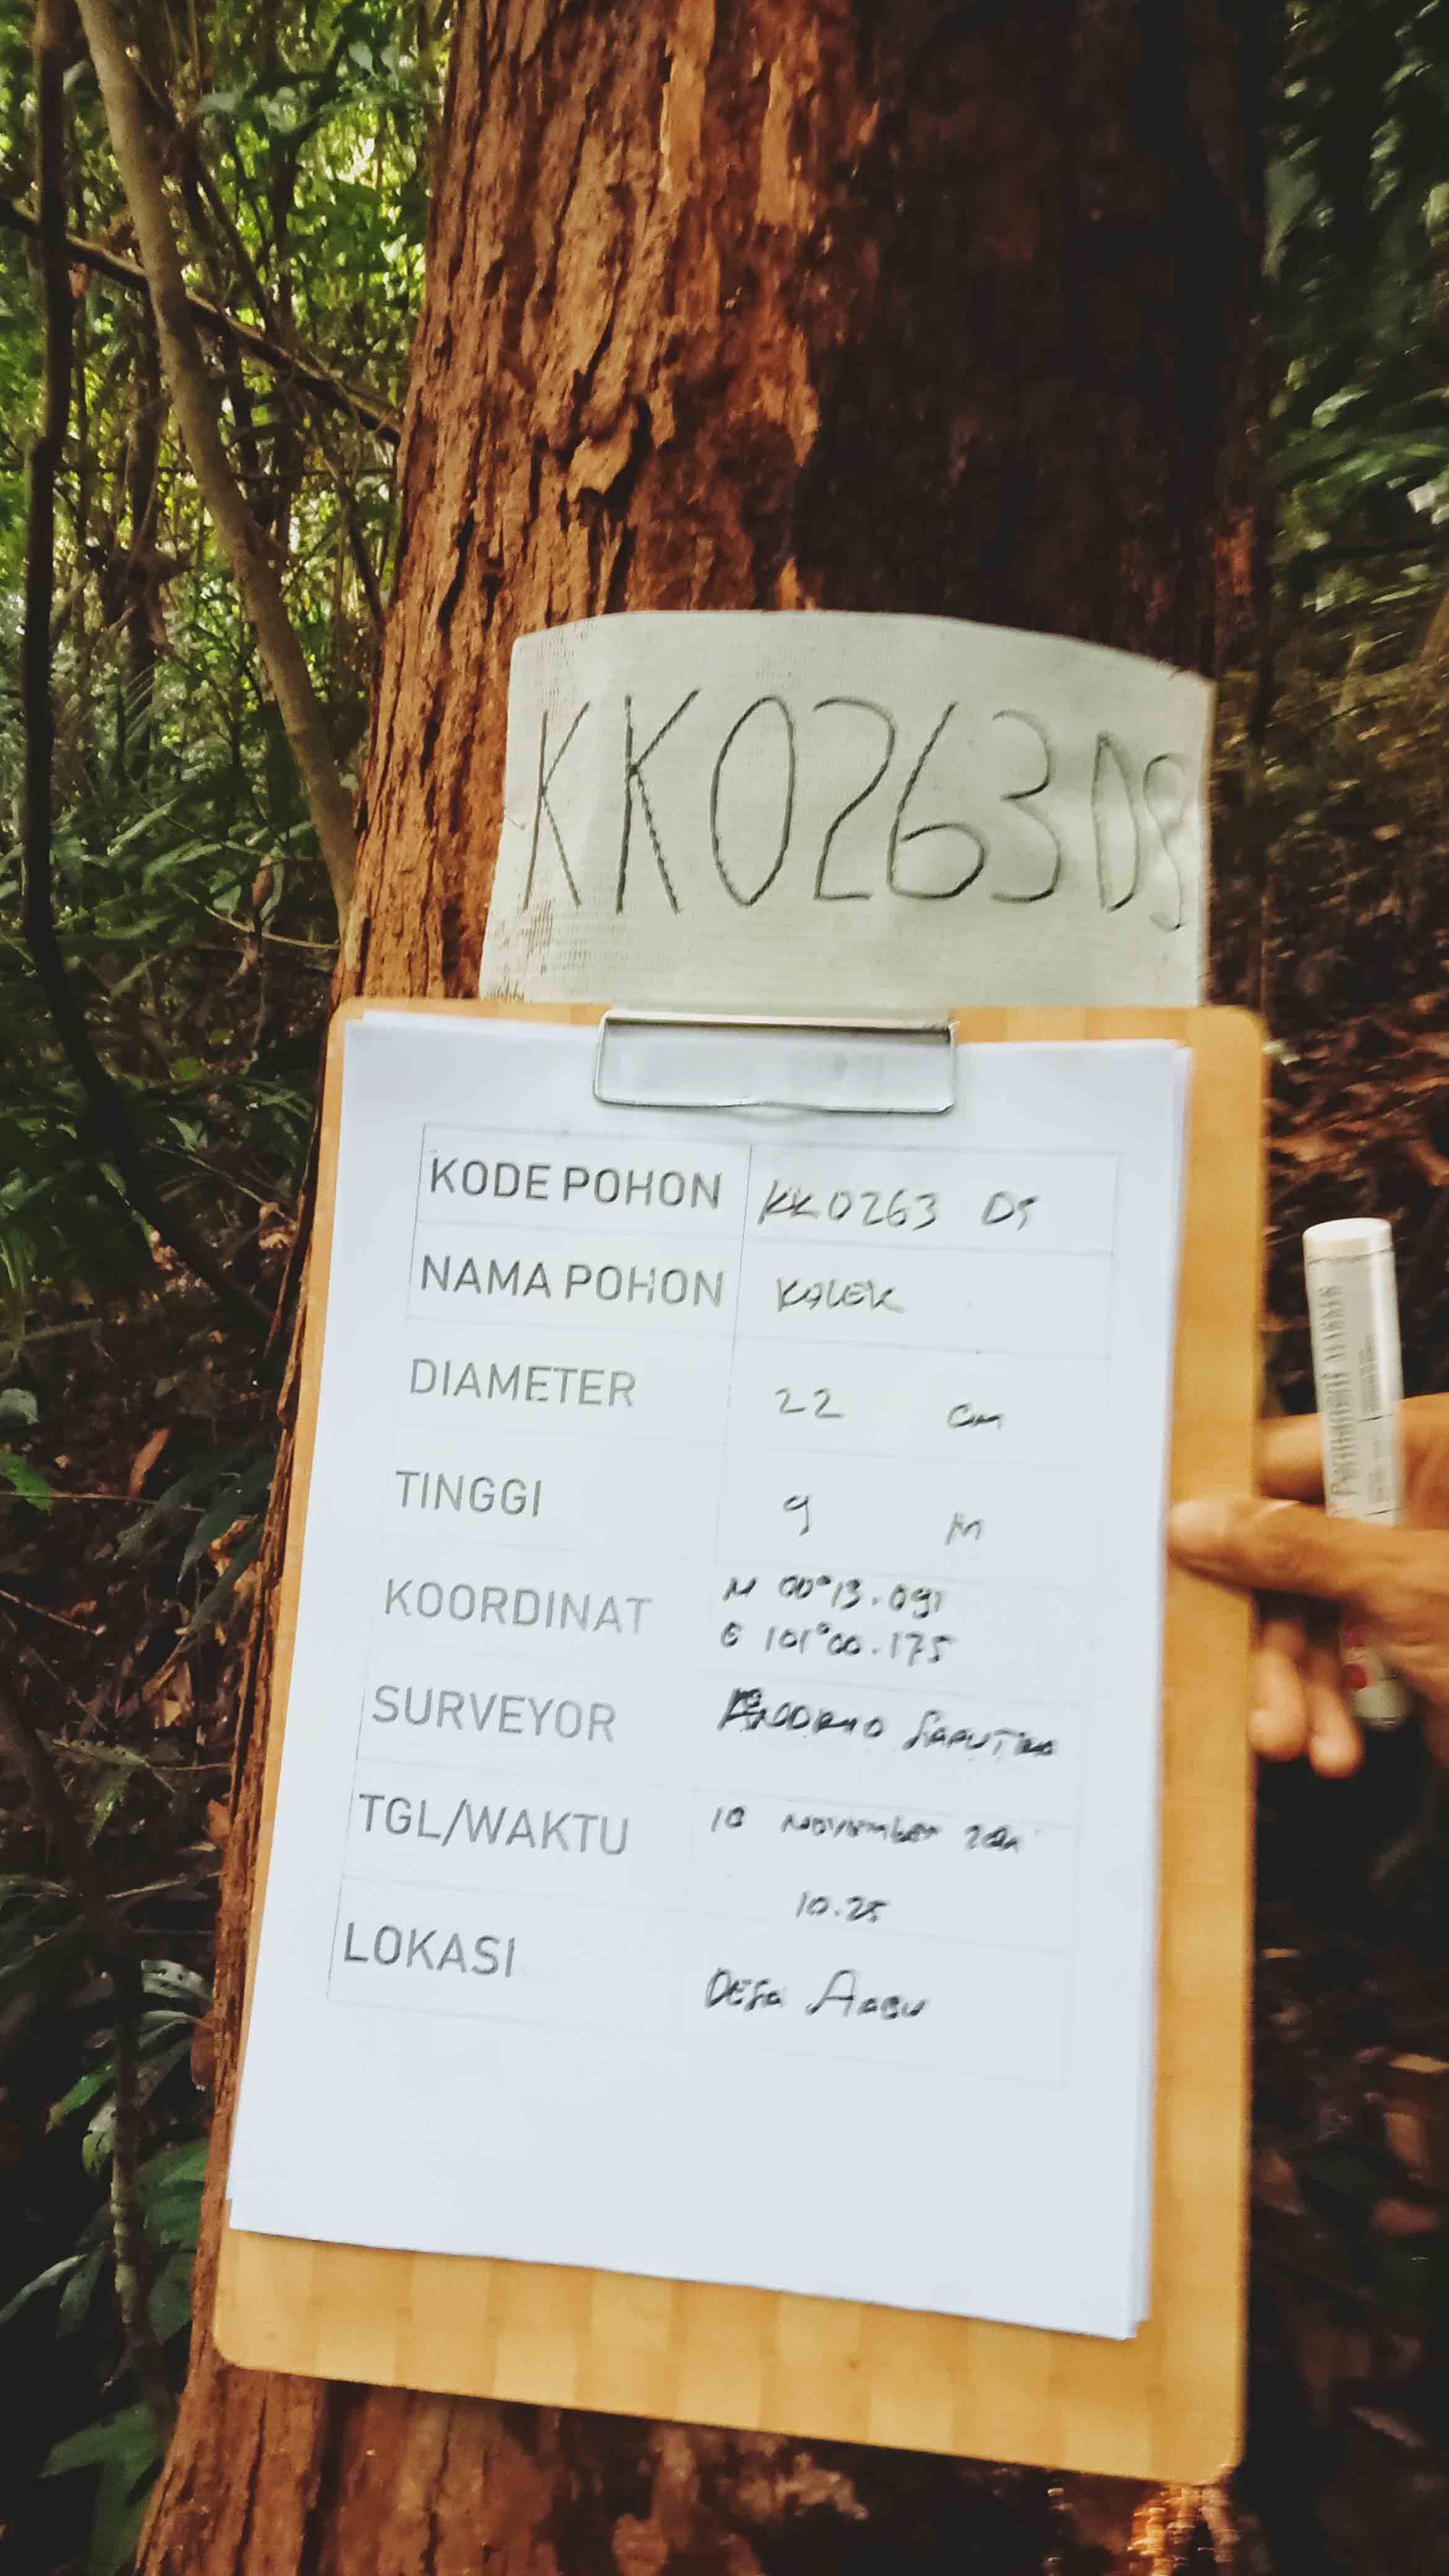 KK0263 DS
KODE POHON KK0263 DS
NAMA POHON KALEK
DIAMETER 22 cm
TINGGI 9 M
KOORDINAT N 00°13.091
E 101°00.175
SURVEYOR SAPUTRA
TGL/WAKTU 10 November
10.25
LOKASI DESA
PERMANENT MARKER